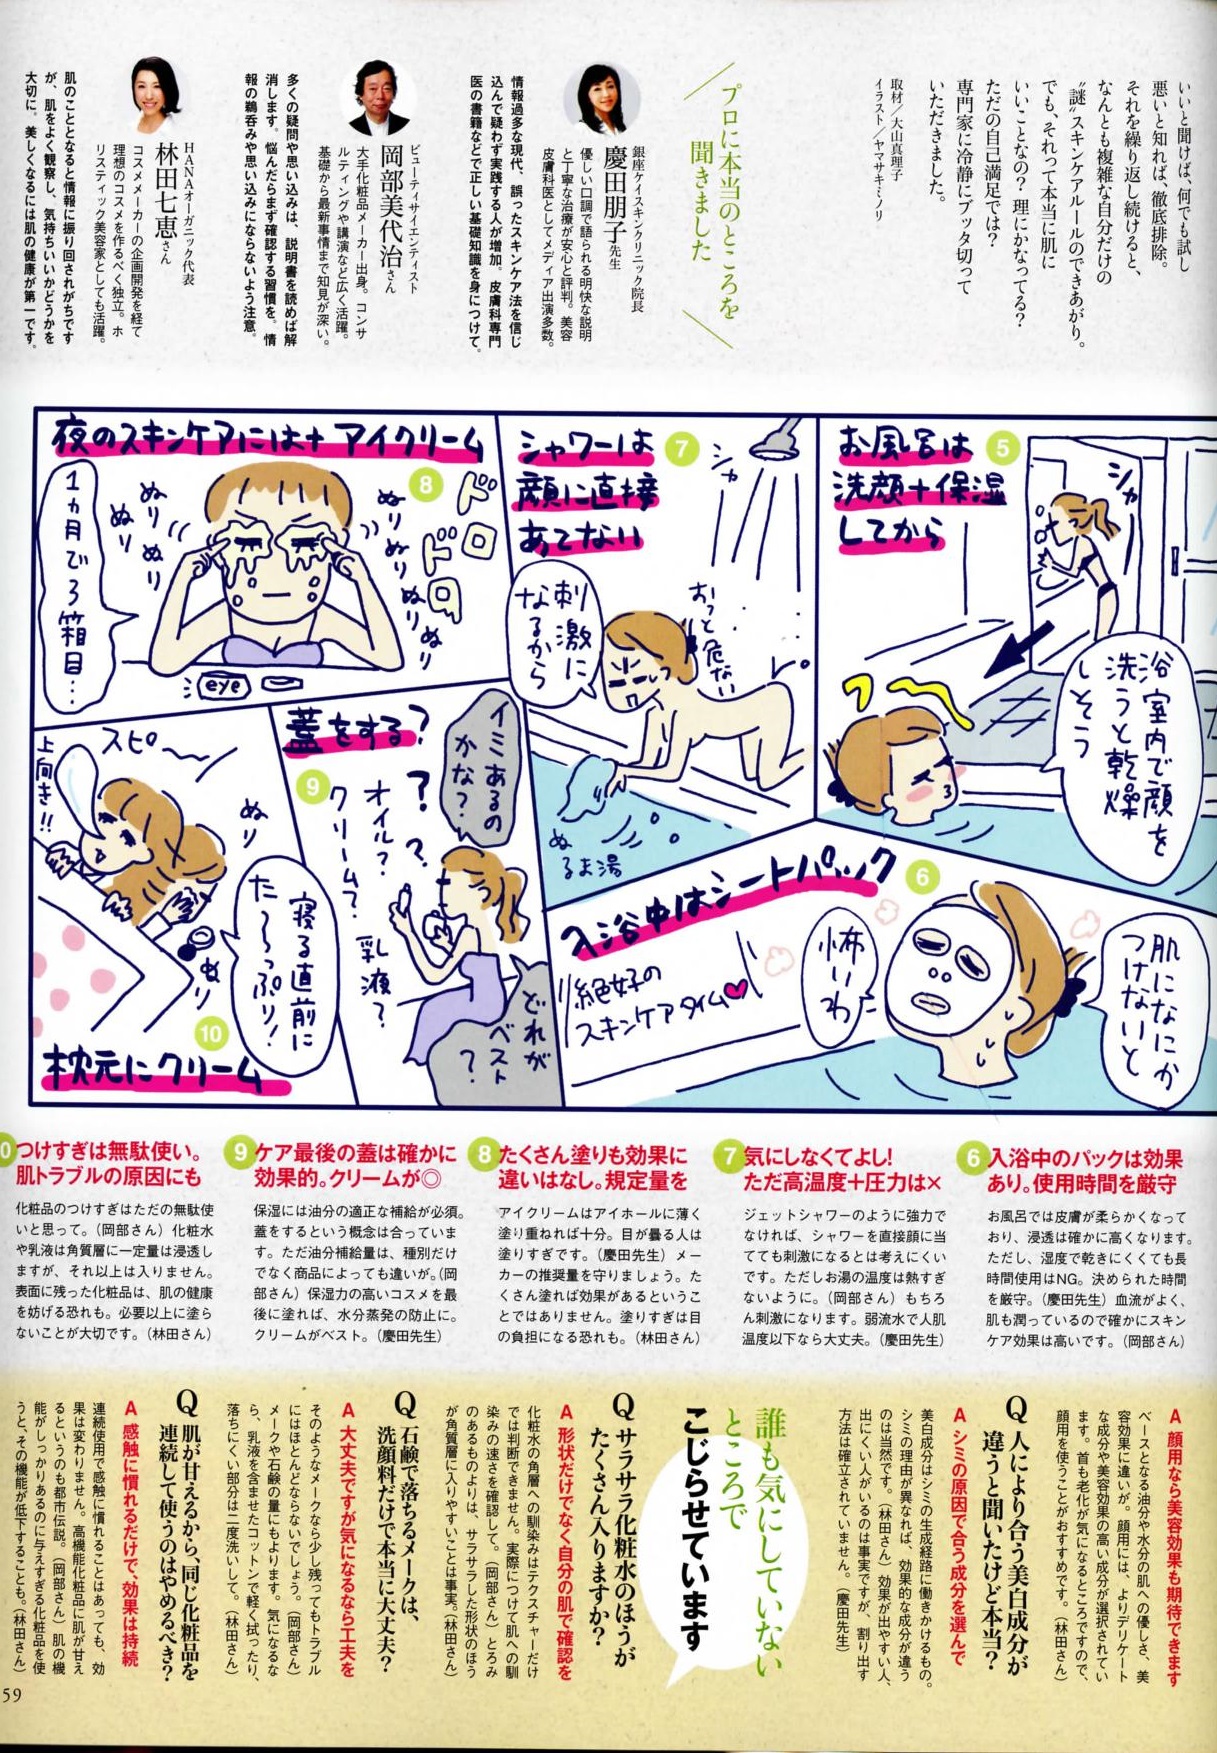 いいと聞けば、何でも試し
悪いと知れば、徹底排除。
それを繰り返し続けると、
なんとも複雑な自分だけの
〝謎〟スキンケアルールのできあがり。
でも、それって本当に肌に
いいことなの？理にかなってる？
ただの自己満足では？
専門家に冷静にブッタ切って
いただきました。
取材／大山真理子
イラスト／ヤマサキミノリ
プロに本当のところを
聞きました
銀座ケイスキンクリニック院長
慶田朋子先生
優しい口調で語られる明快な説明
と丁寧な治療が安心と評判。美容
皮膚科医としてメディア出演多数。
情報過多な現代、誤ったスキンケア法を信じ
込んで疑わず実践する人が増加。皮膚科専門
医の書籍などで正しい基礎知識を身につけて。
ビューティサイエンティスト
岡部美代治さん
大手化粧品メーカー出身。コンサ
ルティングや講演など広く活躍。
基礎から最新事情まで知見が深い。
多くの疑問や思い込みは、説明書を読めば解
消します。悩んだらまず確認する習慣を。情
報の鵜呑みや思い込みにならないよう注意。
HANAオーガニック代表
林田七恵さん
コスメメーカーの企画開発を経て
理想のコスメを作るべく独立。ホ
リスティック美容家としても活躍。
肌のこととなると情報に振り回されがちです
が、肌をよく観察し、気持ちいいかどうかを
大切に。美しくなるには肌の健康が第一です。
5
お風呂は
洗顔+保湿
してから
シャー
浴室内で顔を
洗うと乾燥
しそう
6
入浴中はシートパック
肌になにか
つけないと
怖いわ
絶好の
スキンケアタイム
7
シャワーは
顔に直接
あてない
シャー
刺激に
なるから
おっと危ない
ぬるま湯
8
夜のスキンケアには+アイクリーム
ドロ
ドロ
ぬりぬりぬりぬり
ぬりぬりぬり
1ヵ月で3箱目…
eye
9
蓋をする?
イミあるの
かな?
?
?
オイル?
クリーム?
乳液?
どれが
ベスト
?
10
枕元にクリーム
スピ〜
上向き!!
ぬり
ぬり
寝る直前に
た〜っぷり!
6 入浴中のパックは効果
あり。使用時間を厳守
お風呂では皮膚が柔らかくなって
おり、浸透は確かに高くなります。
ただし、湿度で乾きにくくても長
時間使用はNG。決められた時間
を厳守。（慶田先生）血流がよく、
肌も潤っているので確かにスキン
ケア効果は高いです。（岡部さん）
7 気にしなくてよし！
ただ高温度＋圧力は×
ジェットシャワーのように強力で
なければ、シャワーを直接顔に当
てても刺激になるとは考えにくい
です。ただしお湯の温度は熱すぎ
ないように。（岡部さん）もちろ
ん刺激になります。弱流水で人肌
温度以下なら大丈夫。（慶田先生）
8 たくさん塗りも効果に
違いはなし。規定量を
アイクリームはアイホールに薄く
塗り重ねれば十分。目が曇る人は
塗りすぎです。（慶田先生）メー
カーの推奨量を守りましょう。た
くさん塗れば効果があるというこ
とではありません。塗りすぎは目
の負担になる恐れも。（林田さん）
9 ケア最後の蓋は確かに
効果的。クリームが◎
保湿には油分の適正な補給が必須。
蓋をするという概念は合っていま
す。ただ油分補給量は、種別だけ
でなく商品によっても違いが。（岡
部さん）保湿力の高いコスメを最
後に塗れば、水分蒸発の防止に。
クリームがベスト。（慶田先生）
0 つけすぎは無駄使い。
肌トラブルの原因にも
化粧品のつけすぎはただの無駄使
いと思って。（岡部さん）化粧水
や乳液は角質層に一定量は浸透し
ますが、それ以上は入りません。
表面に残った化粧品は、肌の健康
を妨げる恐れも。必要以上に塗ら
ないことが大切です。（林田さん）
A 顔用なら美容効果も期待できます
ベースとなる油分や水分の肌への優しさ、美
容効果に違いが。顔用には、よりデリケート
な成分や美容効果の高い成分が選択されてい
ます。首も老化が気になるところですので、
顔用を使うことがおすすめです。（林田さん）
Q 人により合う美白成分が
違うと聞いたけど本当？
A シミの原因で合う成分を選んで
美白成分はシミの生成経路に働きかけるもの。
シミの理由が異なれば、効果的な成分が違う
のは当然です。（林田さん）効果が出やすい人、
出にくい人がいるのは事実ですが、割り出す
方法は確立されていません。（慶田先生）
誰も気にしていない
ところで
こじらせています
Q サラサラ化粧水のほうが
たくさん入りますか？
A 形状だけでなく自分の肌で確認を
化粧水の角層への馴染みはテクスチャーだけ
では判断できません。実際につけて肌への馴
染みの速さを確認して。（岡部さん）とろみ
のあるものよりは、サラサラした形状のほう
が角質層に入りやすいことは事実。（林田さん）
Q 石鹸で落ちるメークは、
洗顔料だけで本当に大丈夫？
A 大丈夫ですが気になるなら工夫を
そのようなメークなら少し残ってもトラブル
にはほとんどならないでしょう。（岡部さん）
メークや石鹸の量にもよります。気になるな
ら、乳液を含ませたコットンで軽く拭ったり、
落ちにくい部分は二度洗いして。（林田さん）
Q 肌が甘えるから、同じ化粧品を
連続して使うのはやめるべき？
A 感触に慣れるだけで、効果は持続
連続使用で感触に慣れることはあっても、効
果は変わりません。高機能化粧品に肌が甘え
るというのも都市伝説。（岡部さん）肌の機
能がしっかりあるのに与えすぎる化粧品を使
うと、その機能が低下することも。（林田さん）
59